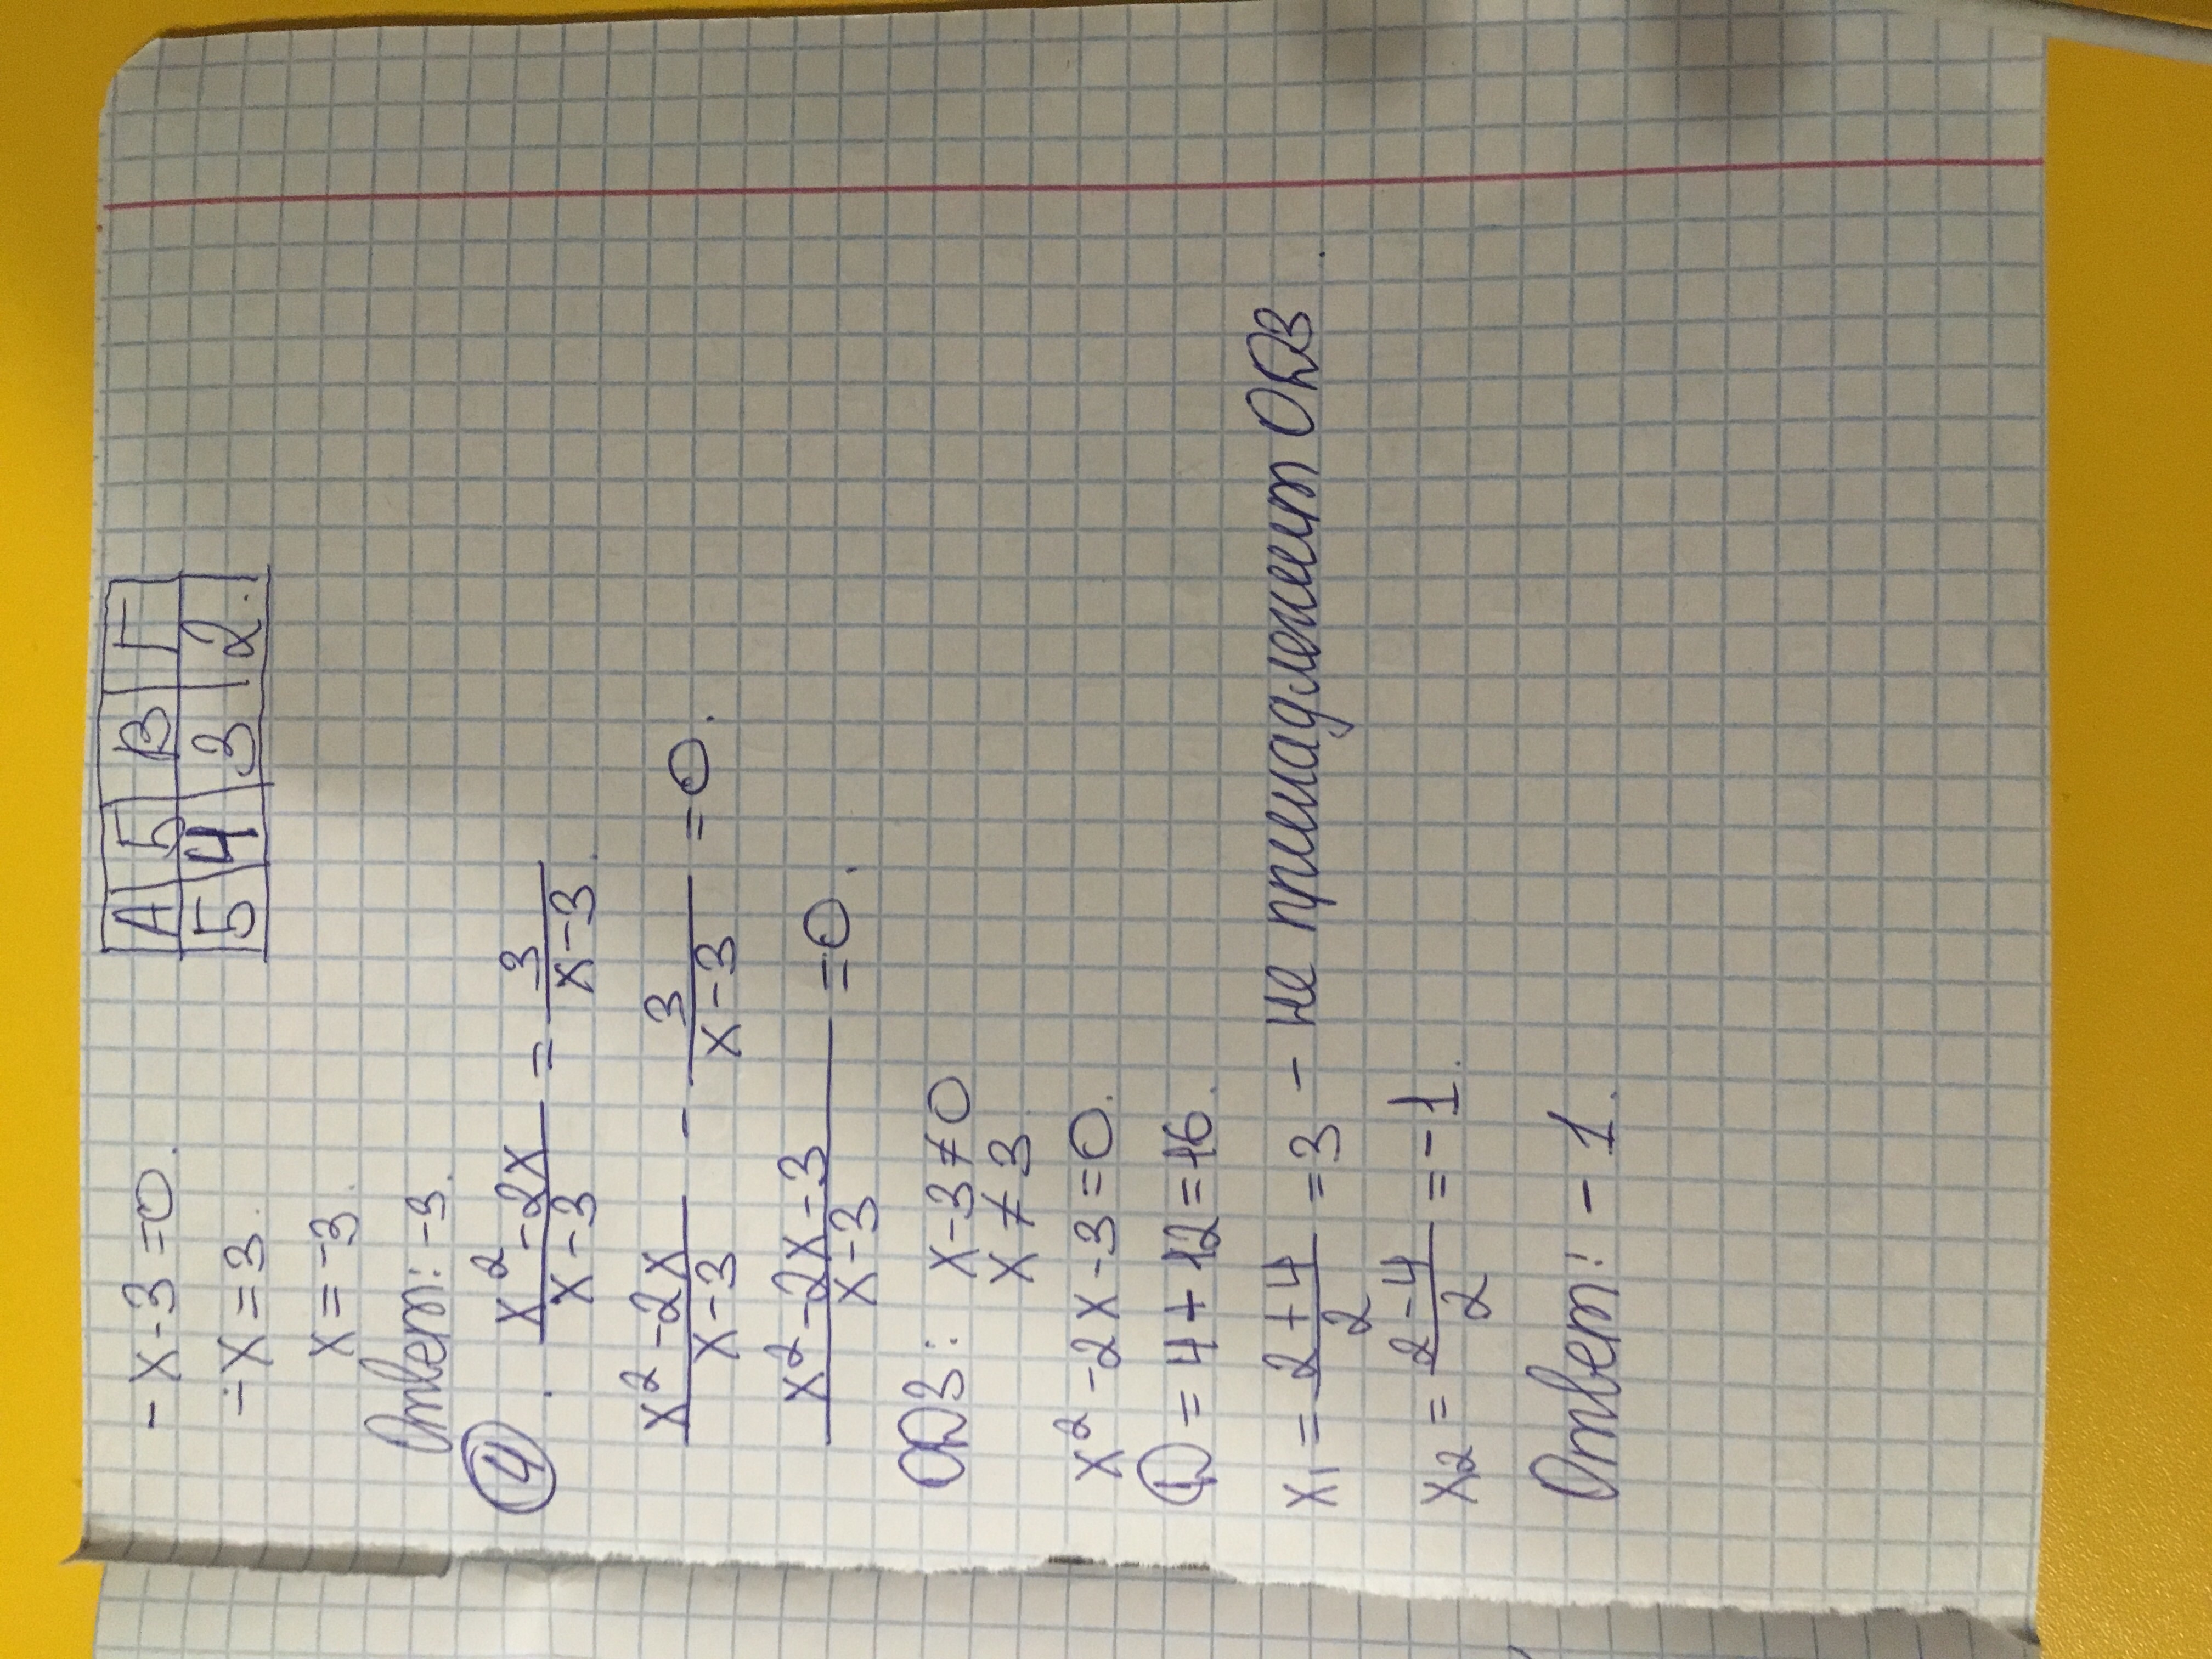 -x-3=0.
-x=3.
x=-3.
Ответ: -3.
А Б В Г
5 4 3 2.
④. \frac{x²-2x}{x-3} = \frac{3}{x-3}.
\frac{x²-2x}{x-3} - \frac{3}{x-3} = 0.
\frac{x²-2x-3}{x-3} = 0.
ОДЗ: x-3≠0
x≠3
x²-2x-3=0.
D=4+12=16.
x₁=\frac{2+4}{2}=3 - не принадлежит ОДЗ.
x₂=\frac{2-4}{2}=-1.
Ответ: -1.